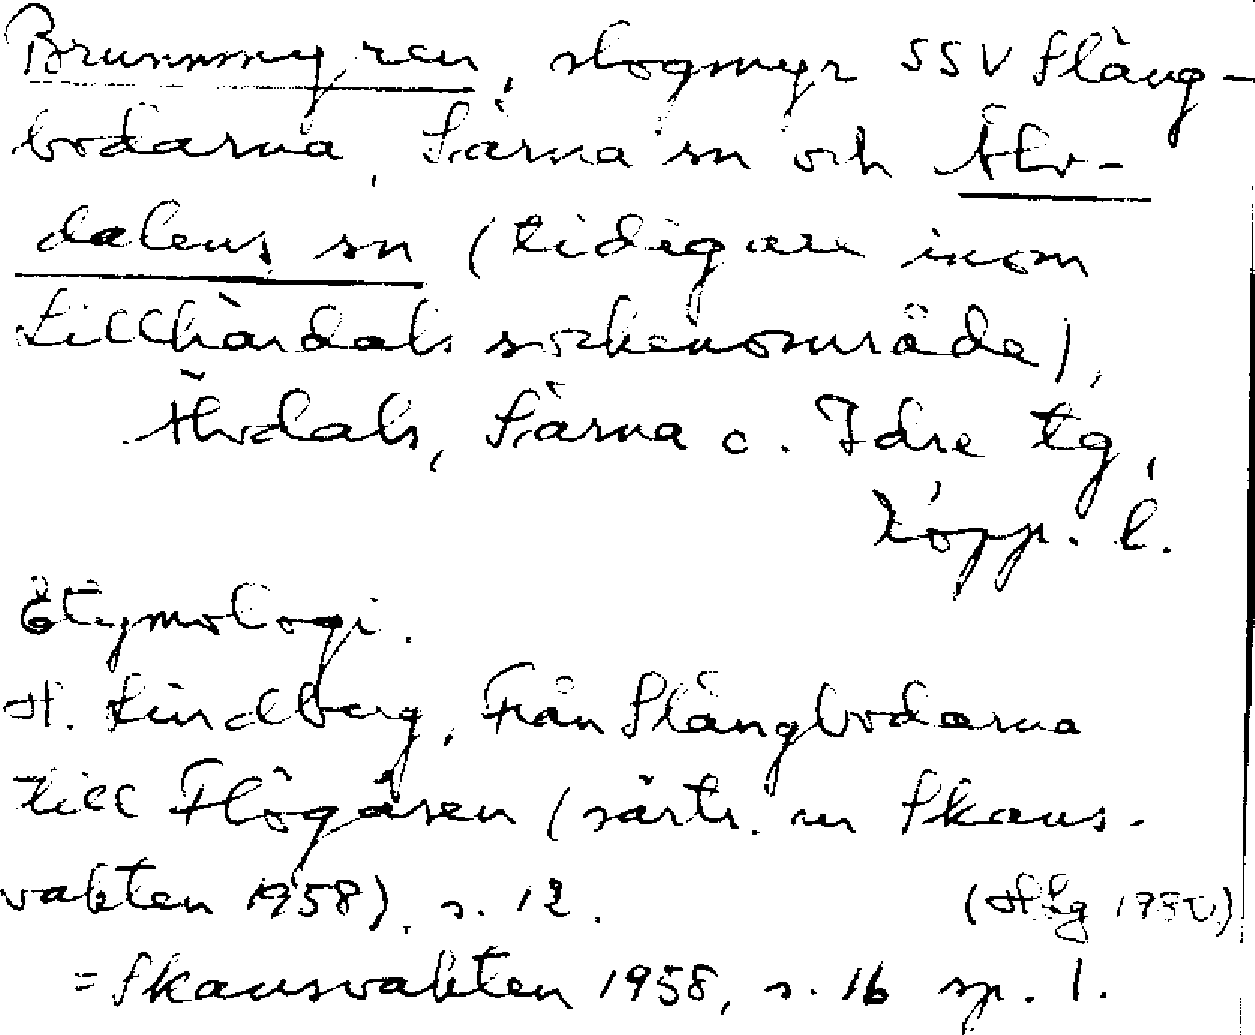 Brunnmyren, slogmyr SSV Släng-
bodarna, Särna sn och Älv-
dalens sn (tidigare inom
Lillhärdals sockenområde),
Älvdals, Särna o. Idre tg,
Kopp. l.
Etymologi.
H. Lindberg, Från Slängbodarna
till Flögåsen (särtr. ur Skans-
vakten 1958), s. 12.
(HLg
= Skansvakten 1958, s. 16 sp. 1.